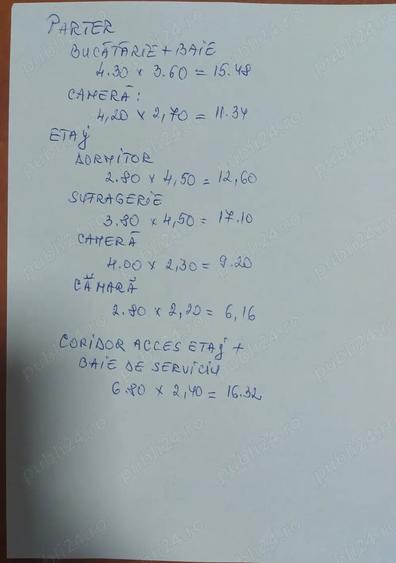 PARTER
BUCĂTĂRIE + BAIE
4.30 × 3.60 = 15.48
CAMERĂ:
4,20 × 2,70 = 11.34
ETAJ
DORMITOR
2.80 × 4,50 = 12,60
SUFRAGERIE
3.80 × 4,50 = 17.10
CAMERĂ
4.00 × 2,30 = 9.20
CĂMARĂ
2.80 × 2,20 = 6,16
CORIDOR ACCES ETAJ +
BAIE DE SERVICIU
6.80 × 2,40 = 16.32
publi24.ro